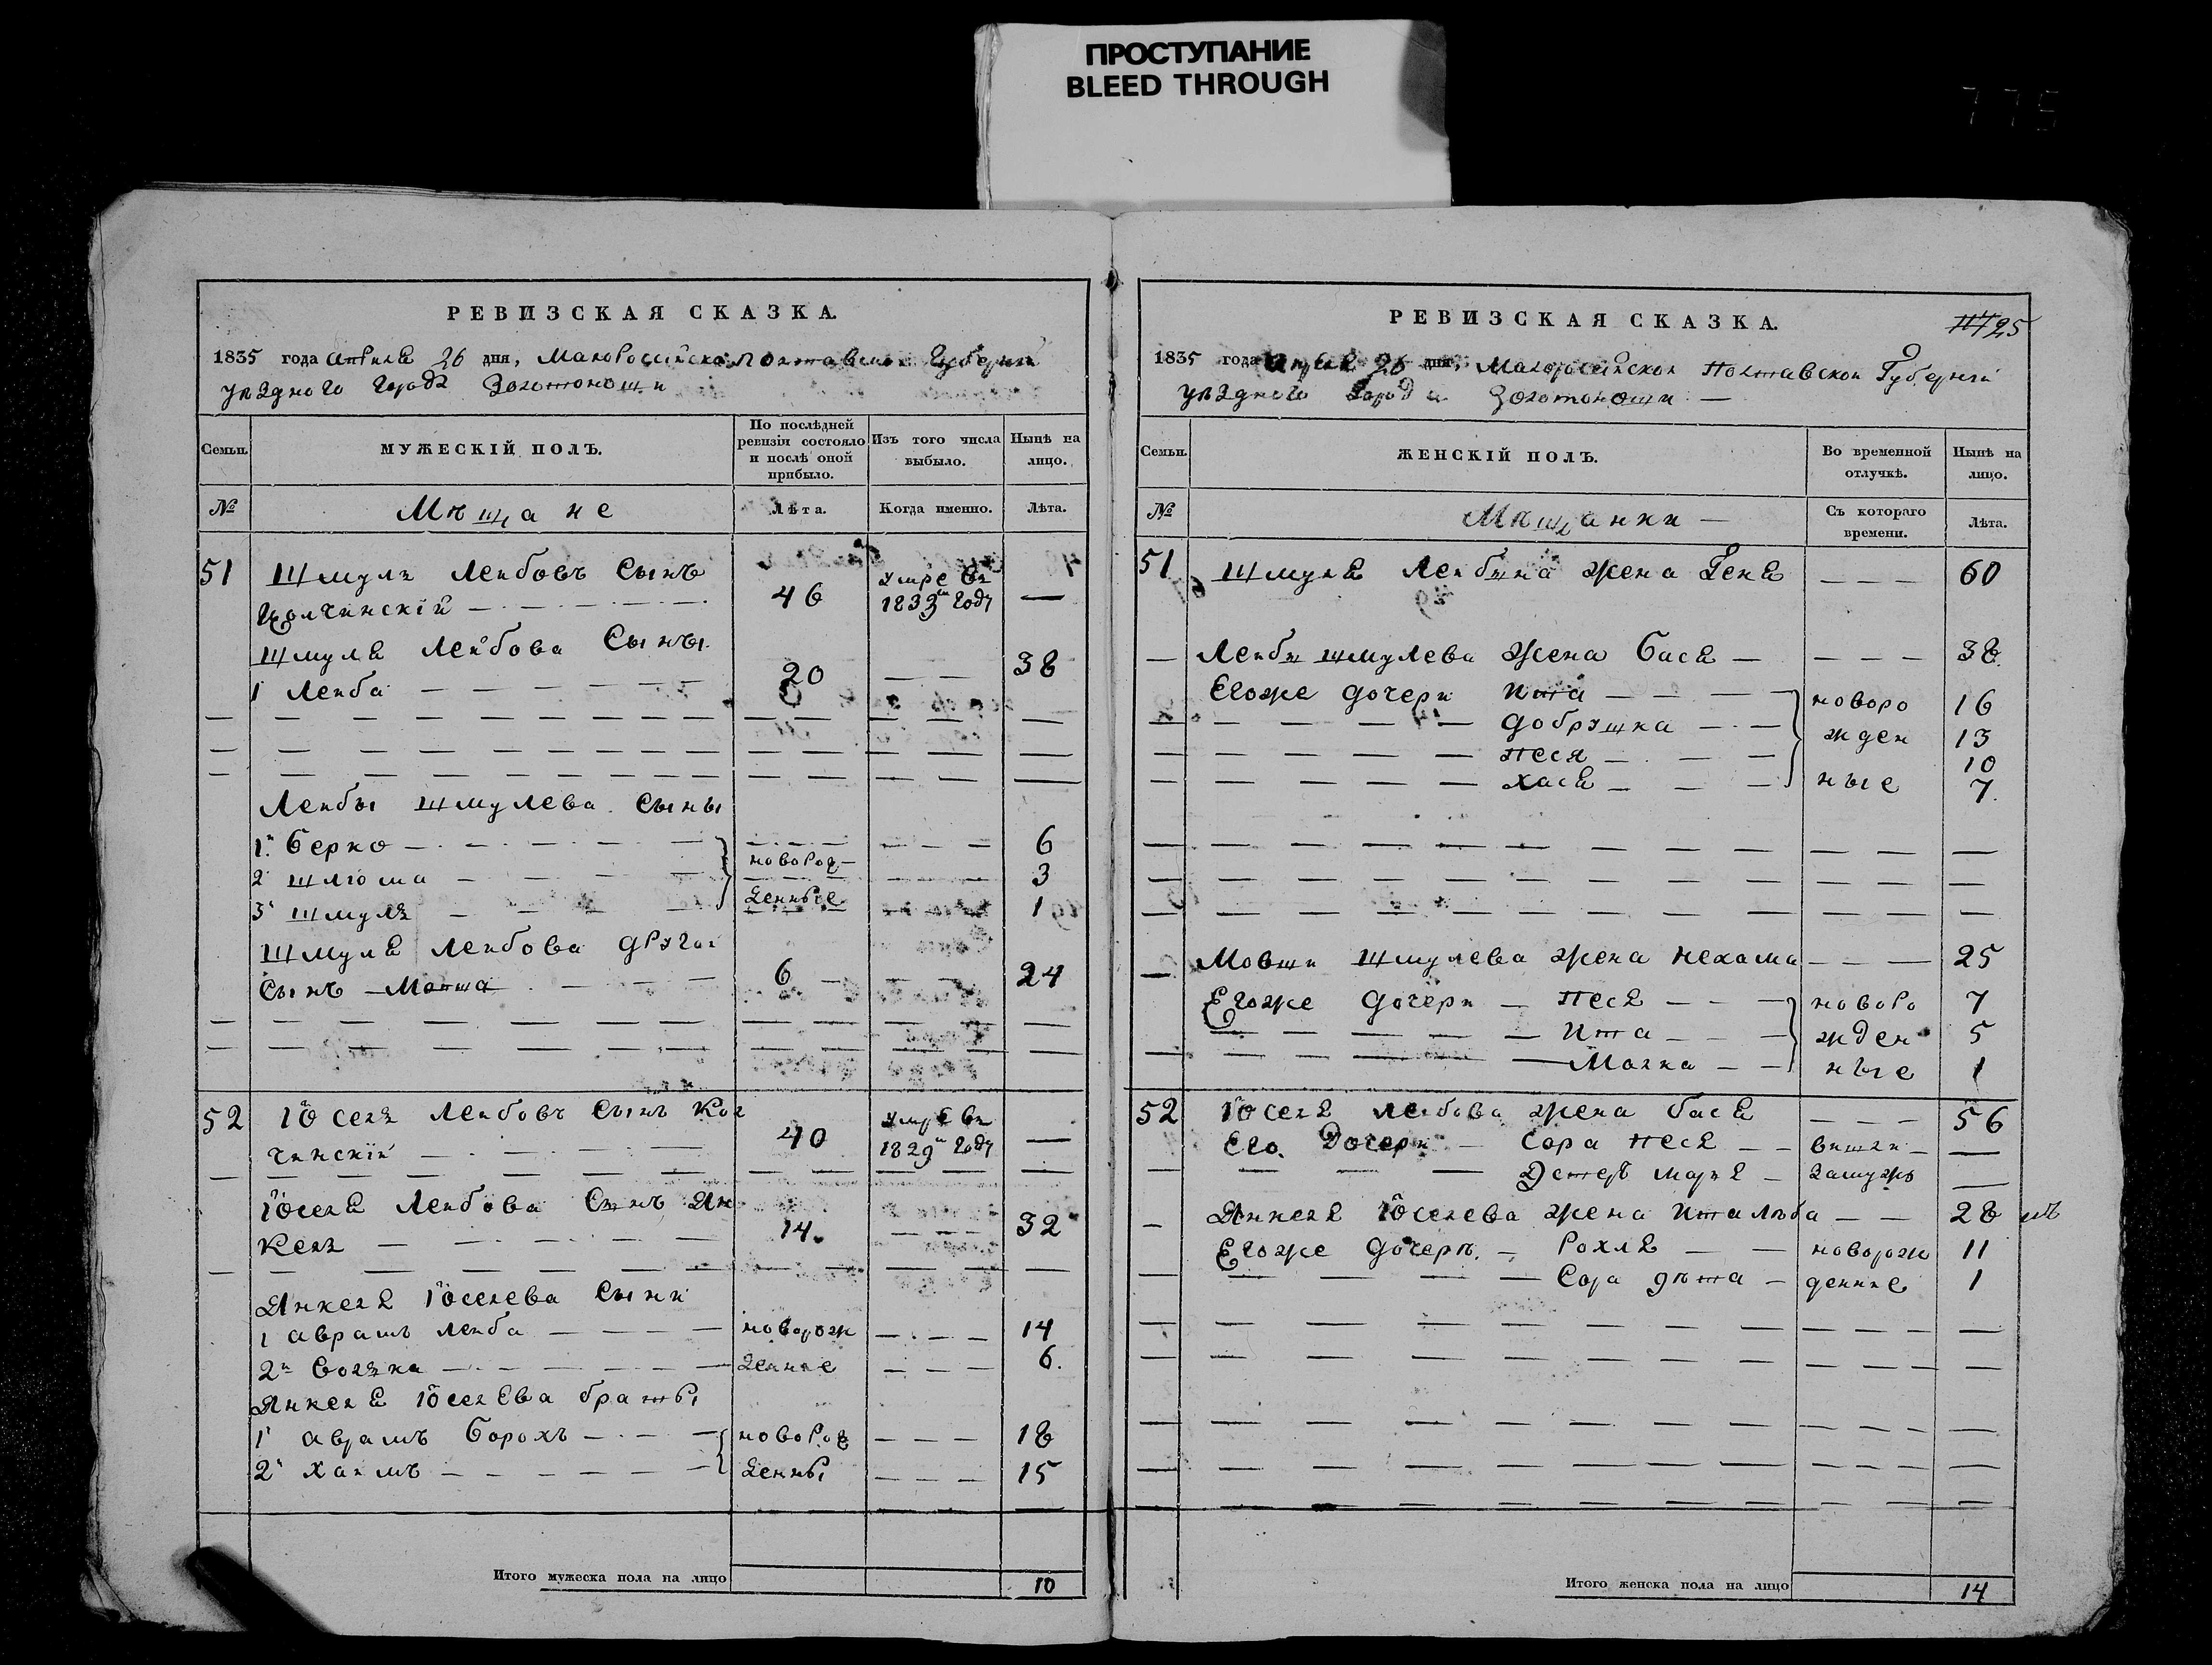 ПРОСТУПАНИЕ
BLEED THROUGH
775
РЕВИЗСКАЯ СКАЗКА.
1835 года апреля 26 дня, Малоросийской Полтавской Губернии
уездного города Золотоноши
Семьи. МУЖЕСКІЙ ПОЛЪ. По послѣдней ревизіи состояло и послѣ оной прибыло. Изъ того числа выбыло. Нынѣ на лицо.
№ Мѣщане Лѣта. Когда именно. Лѣта.
51 Шмуль Лейбовъ сынъ 46 умре въ
1833м году —
Шмуля Лейбова сыны
1 Лейба 20 38
Лейбы Шмулева сыны
1й Берко 6
2 Шлиома новорож 3
3 Шмуль денные 1
Шмуля Лейбова другой
сынъ Мовша 6 24
52 Іосель Лейбовъ сынъ Кол 40 умре въ
чинскій 1829м году —
Іоселя Лейбова сынъ Ян
кель 14 32
Янкеля Іоселева сыни
1 Аврамъ Лейба новорож 14
2й Волька денние 6.
Янкеля Іоселева братьы
1 Аврамъ Борохъ новорож 18
2 Хаимъ денны 15
Итого мужеска пола на лицо 10
РЕВИЗСКАЯ СКАЗКА.
25
1835 года апреля 26 дня, Малоросийской Полтавской Губерній
уездного города Золотоноши —
Семьи. ЖЕНСКІЙ ПОЛЪ. Во временной отлучкѣ. Нынѣ на лицо.
№ Мѣщанки — Съ котораго времени. Лѣта.
51 Шмуля Лейбина жена Геня 60
Лейби Шмулева жена Бася 38
Егоже дочери Ита новоро 16
Добрушка жден 13
Песя 10
Хася ные 7
Мовши Шмулева жена Нехама 25
Егоже дочери Песя новоро 7
Ита жден 5
Малка ные 1
52 Іоселя Лейбова жена Бася 56
Его дочери Сора Песя вишли —
Естеръ Маря замужъ —
Янкеля Іоселева жена 28
Егоже дочерѣ Рохля новорож 11
Сора денние 1
Итого женска пола на лицо 14